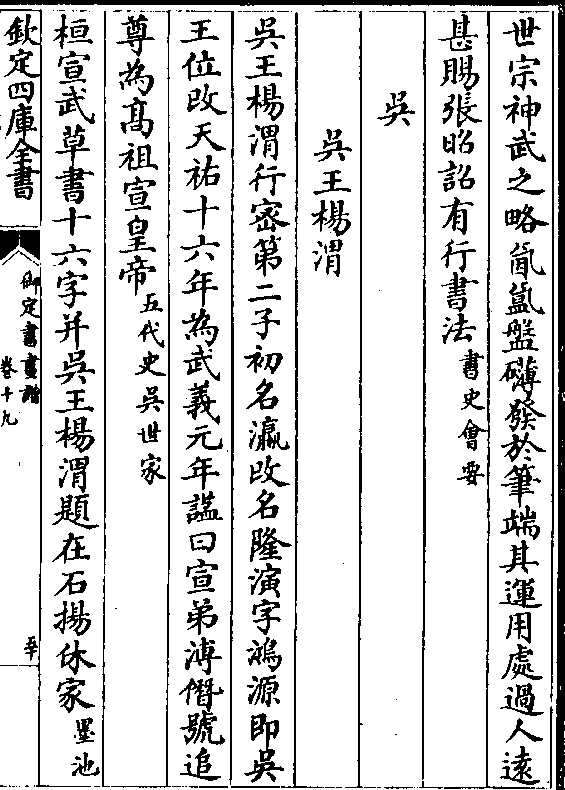 世宗神武之略氤氳盤礴發於筆端其運用處過人遠
甚賜張昭詔有行書法書史會要
吳
吳王楊渭
吳王楊渭行密第二子初名瀛改名隆演字鴻源即吳
王位改天祐十六年為武義元年諡曰宣弟溥僭號追
尊為髙祖宣皇帝五代史吳世家
桓宣武草書十六字并吳王楊渭題在石揚休家墨池
欽定四庫全書
御定書畫譜
卷十九